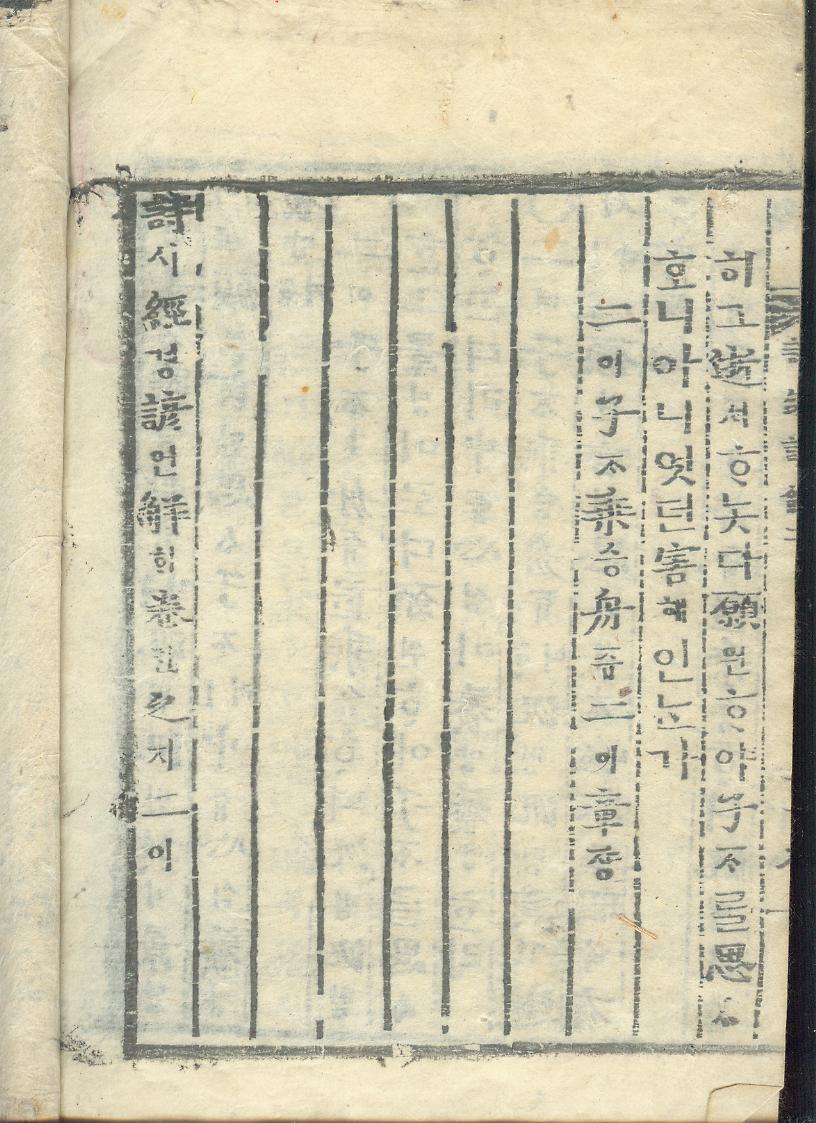 逝셔ᄒᆞ놋다願원ᄒᆞ야子ᄌᆞ를思ᄉᆞ
호니아니엇딘害해인ᄂᆞᆫ가
二이子ᄌᆞ乘승舟쥬二이章쟝
詩시經경諺언解ᄒᆡ卷권之지二이